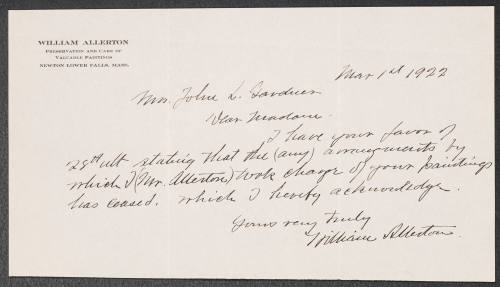 WILLIAM ALLERTON
PRESERVATION AND CARE OF
VALUABLE PAINTINGS
NEWTON LOWER FALLS, MASS.
Mar 1st 1922
Mrs. John L. Gardner
Dear Madam.
I have your favor of
28th ult stating that the (any) arrangments by
which I (Mr. Allerton) took charge of your paintings
has ceased. which I hereby acknowledge.
Yours very truly
William Allerton.